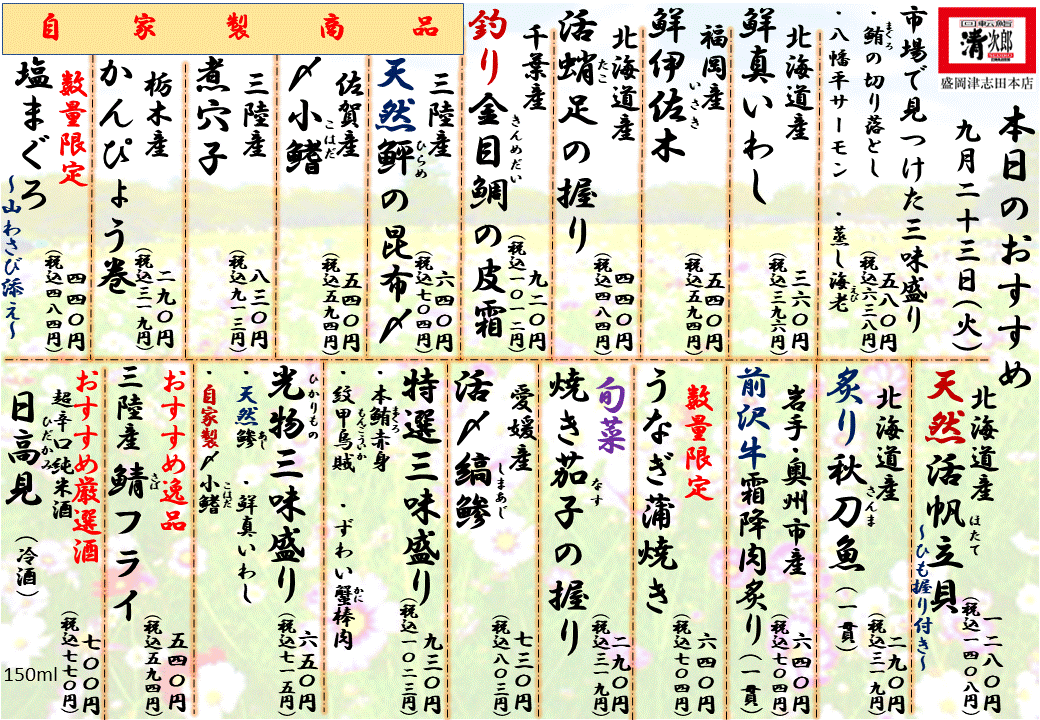 回転鮨
清次郎
盛岡津志田本店
本日のおすすめ
九月二十三日(火)
市場で見つけた三味盛り
・鮪の切り落とし
まぐろ
・八幡平サーモン ・蒸し海老
えび
五八〇円
(税込六三八円)
北海道産
鮮真いわし
三六〇円
(税込三九六円)
福岡産
鮮伊佐木
いさき
五四〇円
(税込五九四円)
北海道産
活蛸足の握り
たこ
四四〇円
(税込四八四円)
千葉産
釣り金目鯛の皮霜
きんめだい
九二〇円
(税込一〇一二円)
自家製商品
三陸産
天然鮃の昆布〆
ひらめ
六四〇円
(税込七〇四円)
佐賀産
〆小鰭
こはだ
五四〇円
(税込五九四円)
三陸産
煮穴子
八三〇円
(税込九一三円)
栃木産
かんぴょう巻
二九〇円
(税込三一九円)
数量限定
塩まぐろ
~山わさび添え~
四四〇円
(税込四八四円)
北海道産
天然活帆立貝
ほたて
~ひも握り付き~
一二八〇円
(税込一四〇八円)
北海道産
炙り秋刀魚(一貫)
さんま
二九〇円
(税込三一九円)
岩手・奥州市産
前沢牛霜降肉炙り(一貫)
六四〇円
(税込七〇四円)
数量限定
うなぎ蒲焼き
六四〇円
(税込七〇四円)
旬菜
焼き茄子の握り
なす
二九〇円
(税込三一九円)
愛媛産
活〆縞鯵
しまあじ
七三〇円
(税込八〇三円)
特選三味盛り
・本鮪赤身
まぐろ
・紋甲烏賊 ・ずわい蟹棒肉
もんごういか
かに
九三〇円
(税込一〇二三円)
光物三味盛り
ひかりもの
・天然鯵 ・鮮真いわし
あじ
・自家製〆小鰭
こはだ
六五〇円
(税込七一五円)
おすすめ逸品
三陸産 鯖フライ
さば
五四〇円
(税込五九四円)
おすすめ厳選酒
超辛口純米酒
日高見
ひだかみ
(冷酒)
七〇〇円
(税込七七〇円)
150ml